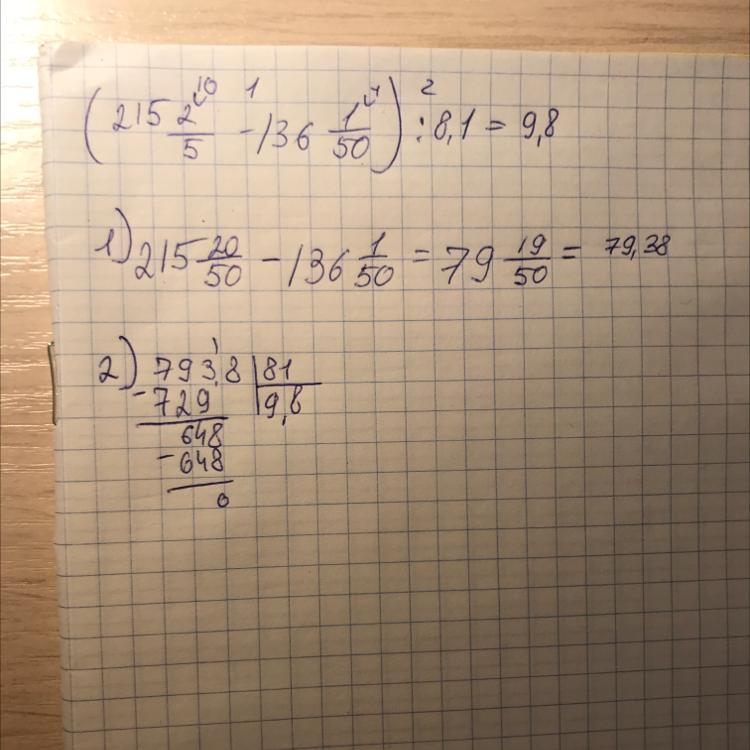 (215 2/5 ^10 - 136 1/50 ^1) : 8,1 = 9,8
1) 215 20/50 - 136 1/50 = 79 19/50 = 79,38
2) 793,8 | 81
- 729 | 9,8
648
- 648
0